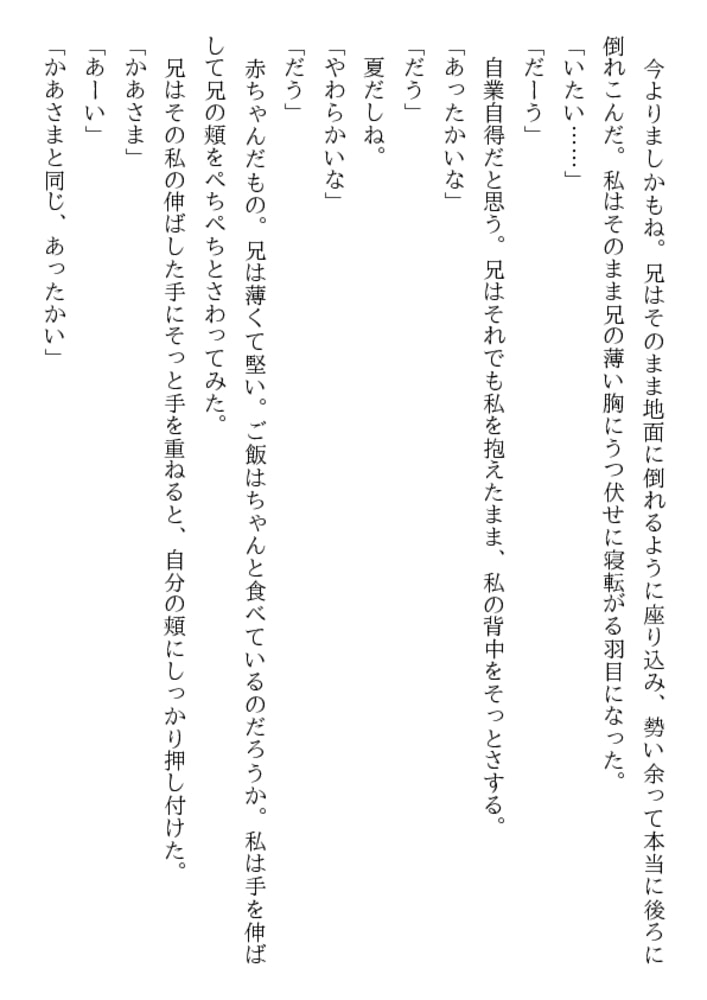 今よりましかもね。兄はそのまま地面に倒れるように座り込み、勢い余って本当に後ろに
倒れこんだ。私はそのまま兄の薄い胸にうつ伏せに寝転がる羽目になった。
「いたい……」
「だーう」
自業自得だと思う。兄はそれでも私を抱えたまま、私の背中をそっとさする。
「あったかいな」
「だう」
夏だしね。
「やわらかいな」
「だう」
赤ちゃんだもの。兄は薄くて堅い。ご飯はちゃんと食べているのだろうか。私は手を伸ば
して兄の頬をぺちぺちとさわってみた。
兄はその私の伸ばした手にそっと手を重ねると、自分の頬にしっかり押し付けた。
「かあさま」
「あーい」
「かあさまと同じ、あったかい」